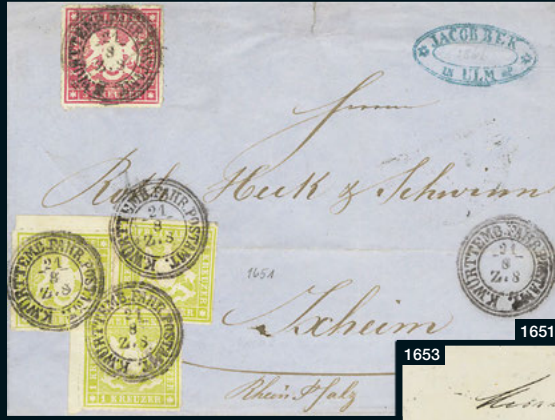 JACOB BEK
IN ULM
Herrn
Roth Heck & Schwinn
K. WÜRTTEMB. FAHR. POSTAMT.
21
8
Z. 8
K. WÜRTTEMB. FAHR. POSTAMT.
21
8
Z. 8
K. WÜRTTEMB. FAHR. POSTAMT.
21
8
Z. 8
K. WÜRTTEMB. FAHR. POSTAMT.
21
8
Z. 8
KREUZER
1 KREUZER
1651
Ixheim
Rhein Pfalz
1651
1653